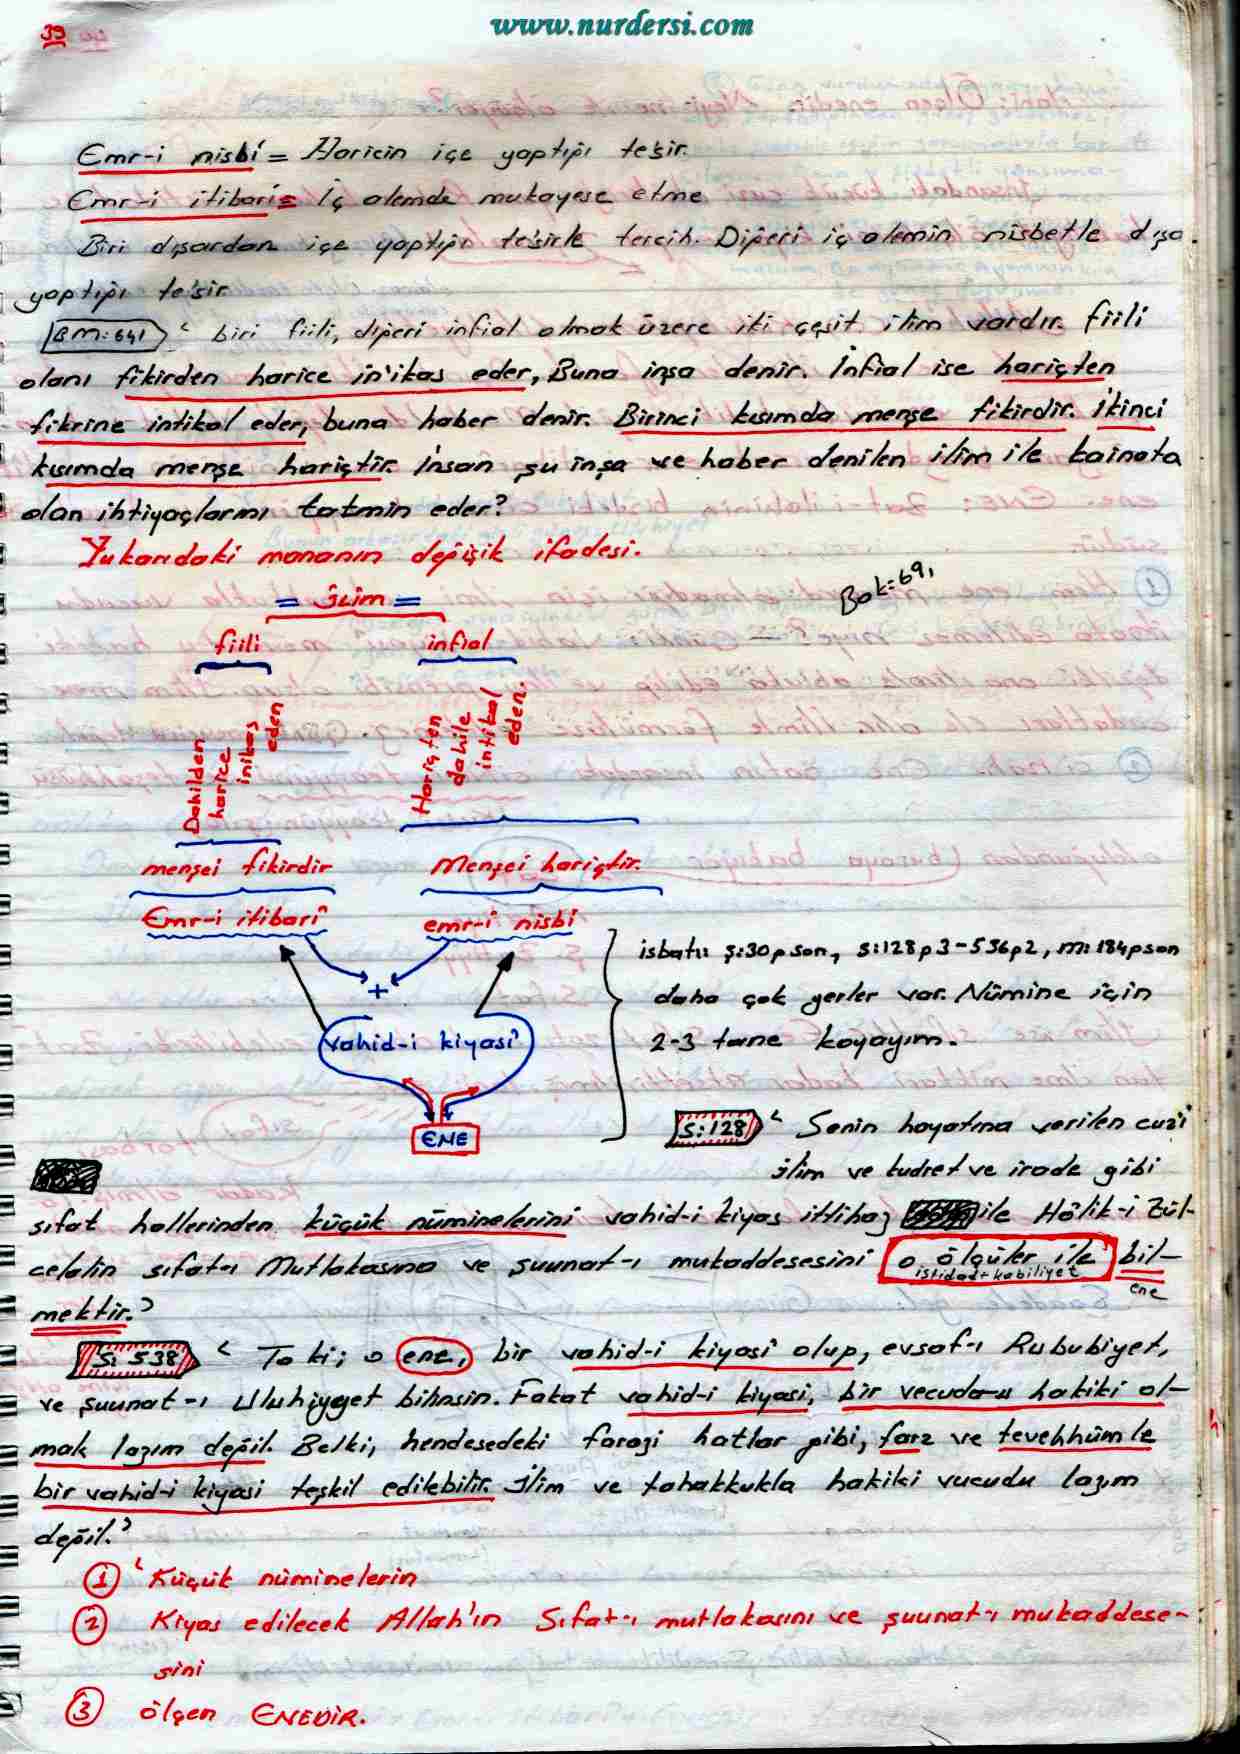 www.nurdersi.com
39
Emr-i nisbî = Haricin içe yaptığı te'sir.
Emr-i itibari = İç alemde mukayese etme
Biri dışardan içe yaptığı te'sirle tercih. Diğeri iç alemin nisbetle dışa
yaptığı te'sir
BM:641 ‘ biri fiili, diğeri infial olmak üzere iki çeşit ilim vardır. fiili
olanı fikirden harice in'ikas eder, Buna inşa denir. İnfial ise hariçten
fikrine intikal eder, buna haber denir. Birinci kısımda menşe fikirdir. İkinci
kısımda menşe hariçtir. İnsan şu inşa ve haber denilen ilim ile kainata
olan ihtiyaçlarını tatmin eder?
Yukarıdaki mananın değişik ifadesi.
Bak=69,
= İLİM =
fiili infial
Dahilden harice inikas eden
Hariçten dahile intikal eden.
menşei fikirdir Menşei hariçtir.
Emr-i itibarî emr-i nisbi
+
vahid-i kiyasî
ENE
isbatı ş:30 p son, s:128 p 3-536 p2, m:184 p son
daha çok yerler var. Nümine için
2-3 tane koyayım.
S:128 ‘ Senin hayatına verilen cuz'i
ilim ve kudret ve irade gibi
sıfat hallerinden küçük nüminelerini vahid-i kiyas ittihaz ile Hâlik-i Zül-
celalin sıfat-ı Mutlakasına ve şuunat-ı mukaddesesini o ölçüler ile bil-
istidad+kabiliyet
ene
mektir.’
S: 538 ‘ Ta ki; o ene, bir vahid-i kiyasi olup, evsaf-ı Rububiyet,
ve şuunat-ı Uluhiyyet bilinsin. Fakat vahid-i kiyasi, bir vecud-u hakiki ol-
mak lazım değil. Belki, hendesedeki farazi hatlar gibi, farz ve tevehhümle
bir vahid-i kiyasi teşkil edilebilir. İlim ve tahakkukla hakiki vucudu lazım
değil.’
1 ‘ Küçük nüminelerin
2 Kiyas edilecek Allah'ın Sıfat-ı mutlakasını ve şuunat-ı mukaddese-
sini
3 ölçen ENEDİR.